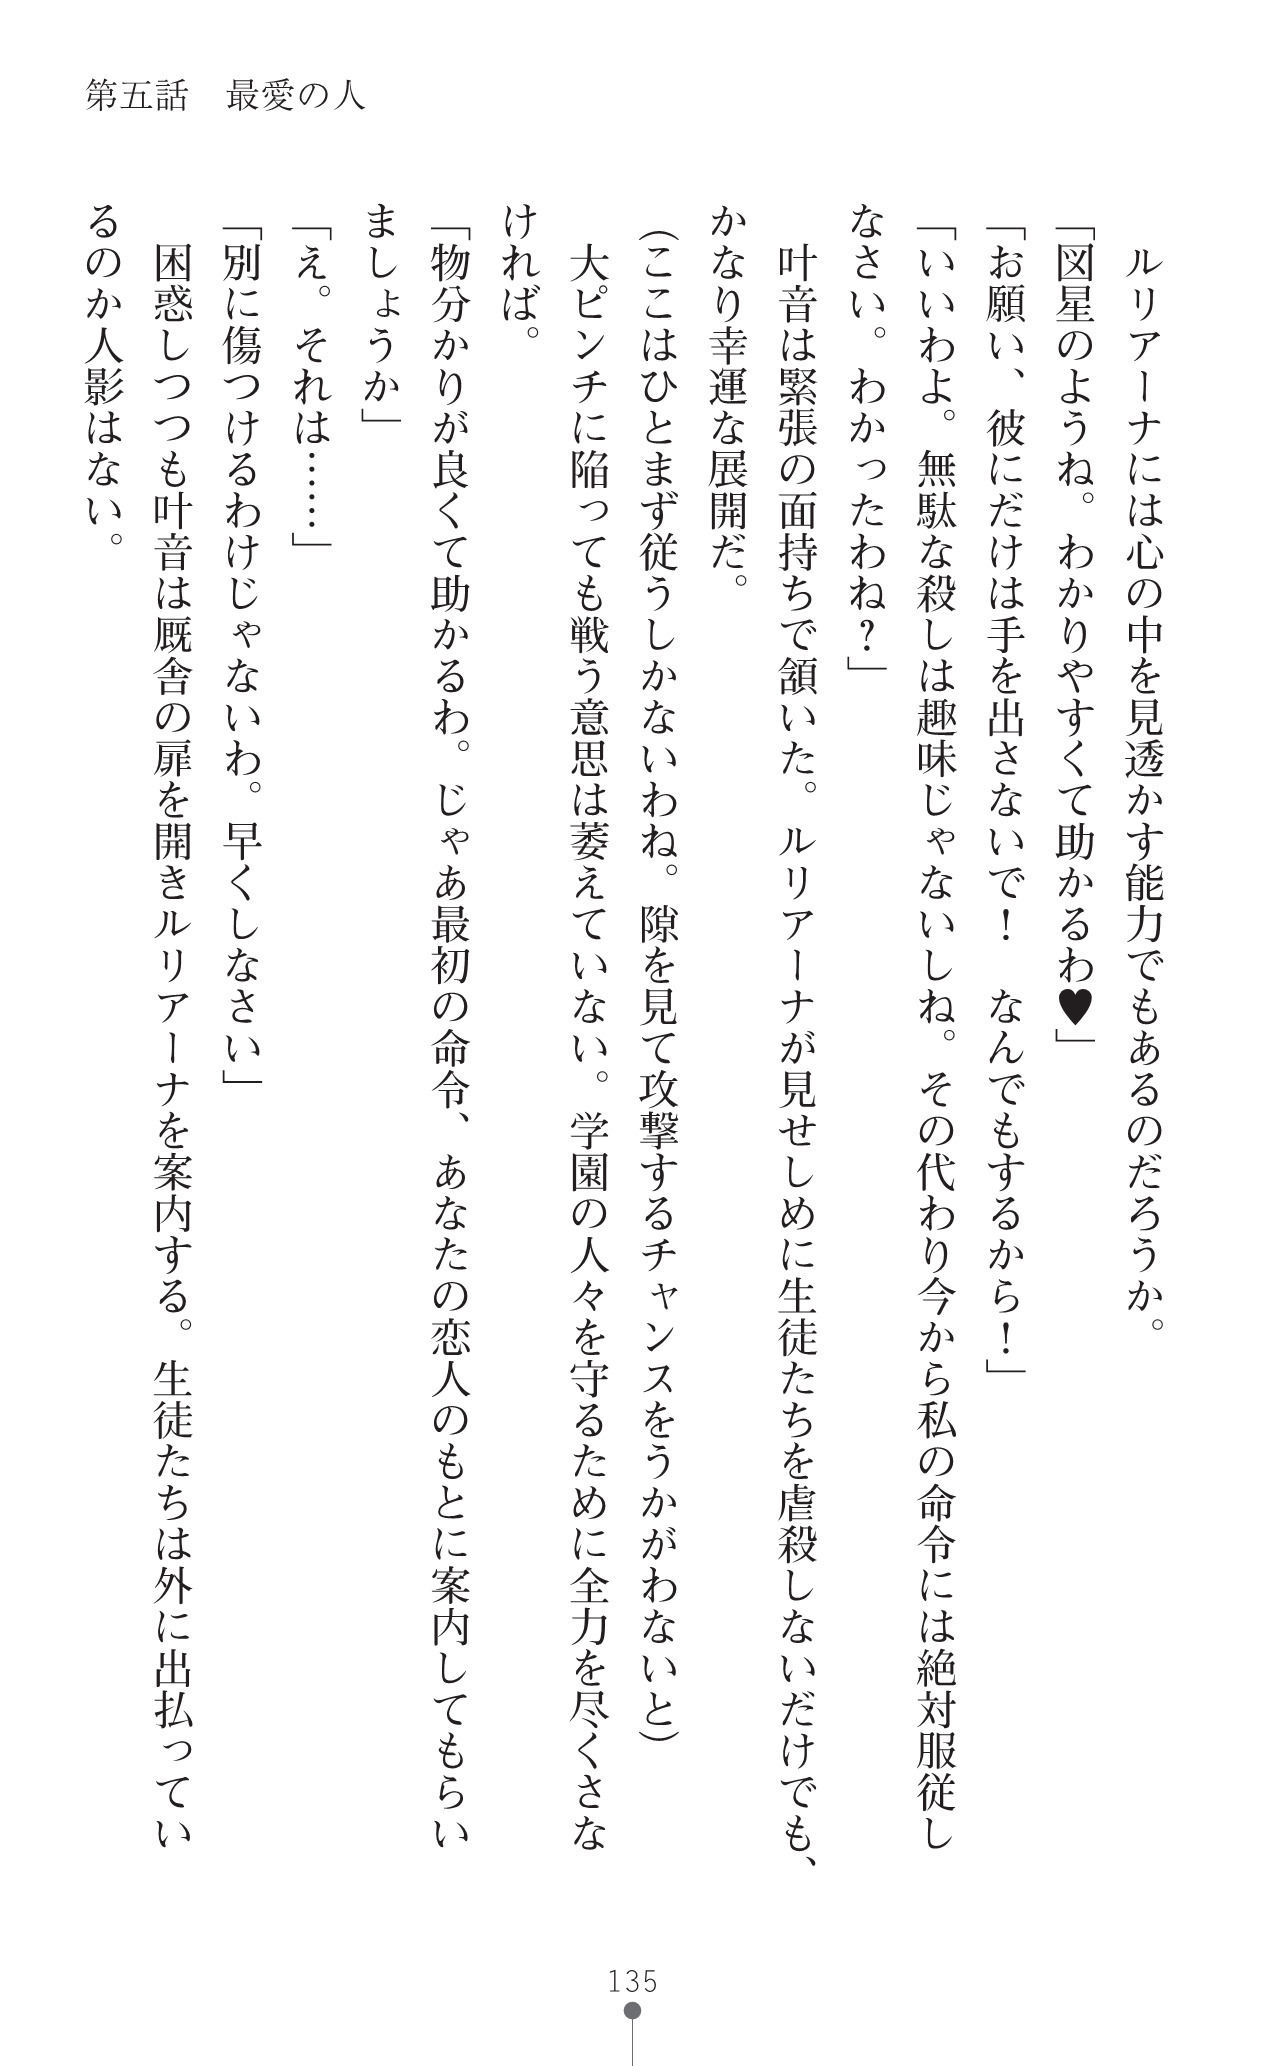 第五話　最愛の人
　ルリアーナには心の中を見透かす能力でもあるのだろうか。
「図星のようね。わかりやすくて助かるわ♥」
「お願い、彼にだけは手を出さないで！　なんでもするから！」
「いいわよ。無駄な殺しは趣味じゃないしね。その代わり今から私の命令には絶対服従し
なさい。わかったわね？」
　叶音は緊張の面持ちで頷いた。ルリアーナが見せしめに生徒たちを虐殺しないだけでも、
かなり幸運な展開だ。
（ここはひとまず従うしかないわね。隙を見て攻撃するチャンスをうかがわないと）
　大ピンチに陥っても戦う意思は萎えていない。学園の人々を守るために全力を尽くさな
ければ。
「物分かりが良くて助かるわ。じゃあ最初の命令、あなたの恋人のもとに案内してもらい
ましょうか」
「え。それは……」
「別に傷つけるわけじゃないわ。早くしなさい」
　困惑しつつも叶音は厩舎の扉を開きルリアーナを案内する。生徒たちは外に出払ってい
るのか人影はない。
135